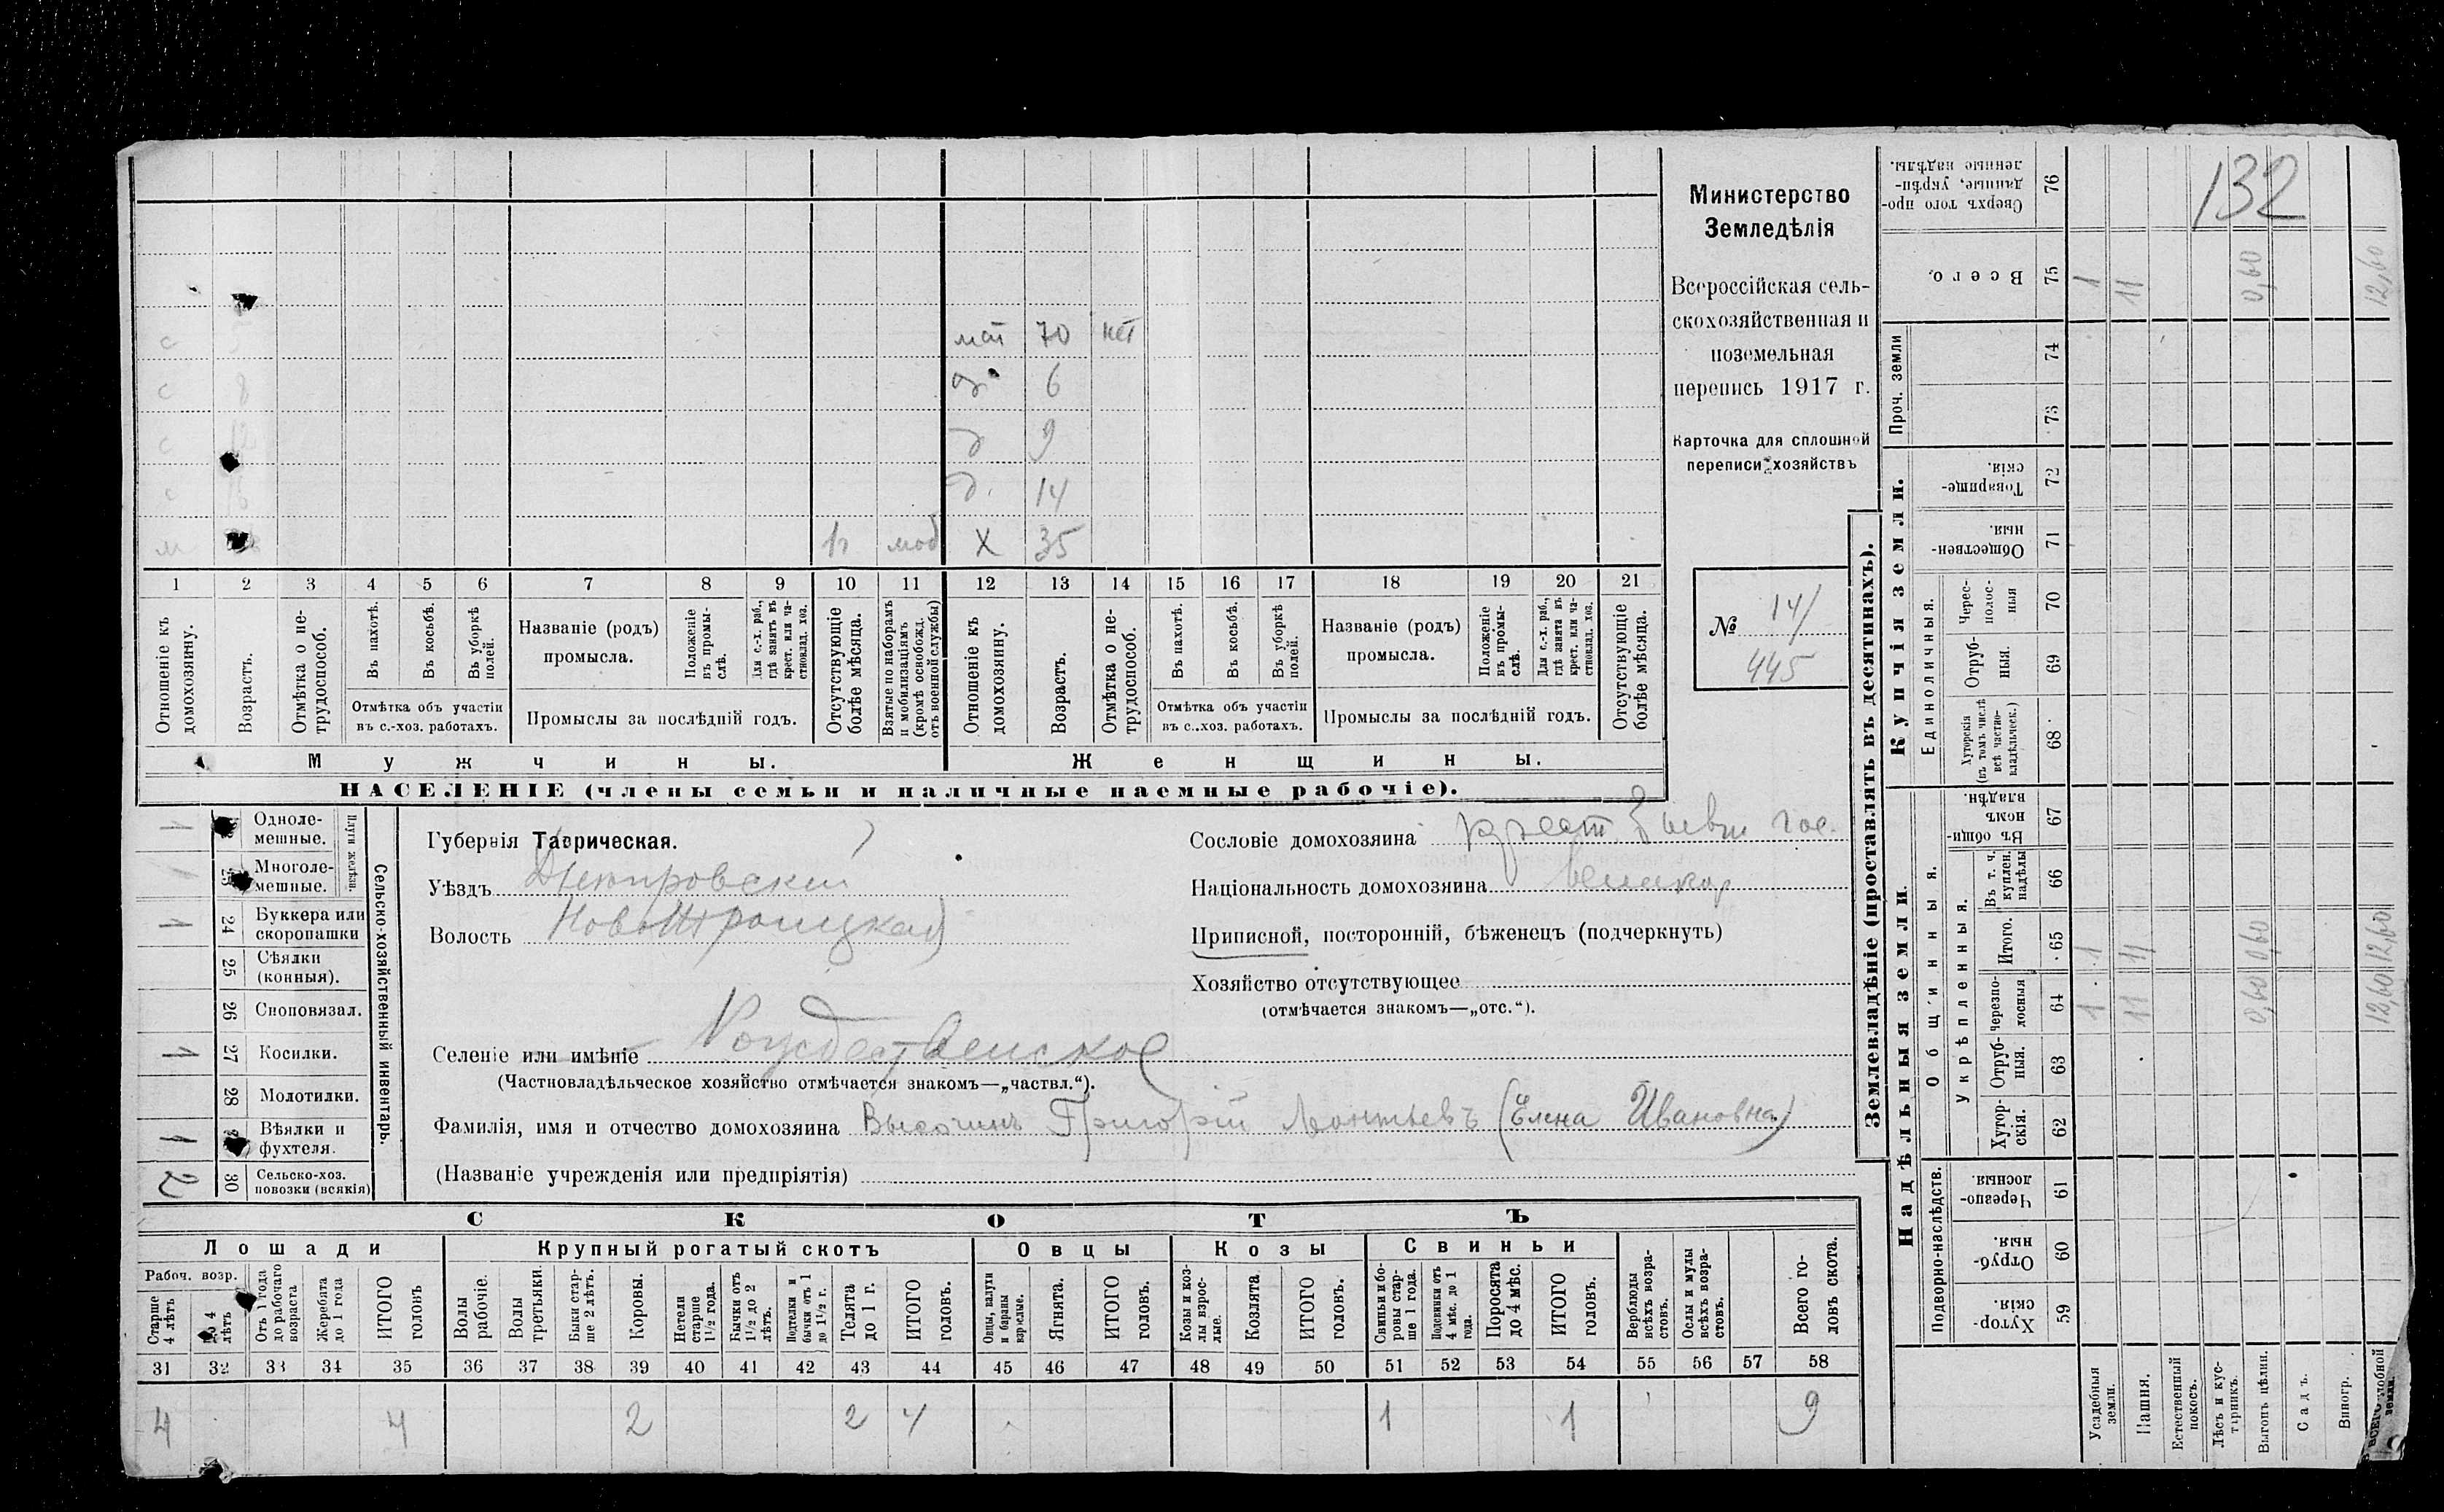 132
Министерство
Земледѣлія
Всероссійская сель-
скохозяйственная и
поземельная
перепись 1917 г.
Карточка для сплошной
переписи хозяйствъ
№ 14/
445
мат 70 нет
д. 6
д 9
д. 14
с
с 8
с
с
м
1 моб Х 35
1 2 3 4 5 6 7 8 9 10 11 12 13 14 15 16 17 18 19 20 21
Отношеніе къ домохозяину.
Возрастъ.
Отмѣтка о не-трудоспособ.
Въ пахотѣ.
Въ косьбѣ.
Въ уборкѣ полей.
Отмѣтка объ участіи
въ с.-хоз. работахъ.
Названіе (родъ)
промысла.
Положеніе въ промы-слѣ.
Для с.-х. раб., гдѣ занятъ въ крест. или ча-стновлад. хоз.
Промыслы за послѣдній годъ.
Отсутствующіе болѣе мѣсяца.
Взятые по наборамъ и мобилизаціямъ (кромѣ освобожд. отъ военной службы)
Отношеніе къ домохозяину.
Возрастъ.
Отмѣтка о не-трудоспособ.
Въ пахотѣ.
Въ косьбѣ.
Въ уборкѣ полей.
Отмѣтка объ участіи
въ с.-хоз. работахъ.
Названіе (родъ)
промысла.
Положеніе въ промы-слѣ.
Для с.-х. раб., гдѣ занята въ крест. или ча-стновлад. хоз.
Промыслы за послѣдній годъ.
Отсутствующіе болѣе мѣсяца.
Мужчины.
Женщины.
НАСЕЛЕНІЕ (члены семьи и наличные наемные рабочіе).
Сельско-хозяйственный инвентарь.
Плуги желѣзн.
1 Одноле-мешные.
1 Многоле-мешные.
1 24 Буккера или скоропашки
25 Сѣялки (конныя).
26 Сноповязал.
1 27 Косилки.
28 Молотилки.
1 Вѣялки и фухтеля.
2 30 Сельско-хоз. повозки (всякія)
Губернія Таврическая.
Уѣздъ Днепровский
Волость Новотроицкая
Селеніе или имѣніе Рождественское
(Частновладѣльческое хозяйство отмѣчается знакомъ—„частвл.“).
Фамилія, имя и отчество домохозяина Высочинъ Григорій Леонтьевъ (Елена Ивановна)
(Названіе учрежденія или предпріятія)
Сословіе домохозяина крест. бывш гос.
Національность домохозяина великор
Приписной, посторонній, бѣженецъ (подчеркнуть)
Хозяйство отсутствующее
(отмѣчается знакомъ—„отс.“).
СКОТЪ
Лошади
Крупный рогатый скотъ
Овцы
Козы
Свиньи
Рабоч. возр.
Старше 4 лѣтъ
До 4 лѣтъ
Отъ 1 года до рабочаго возраста
Жеребята до 1 года
ИТОГО головъ
Волы рабочіе.
Волы третьяки.
Быки стар-ше 2 лѣтъ.
Коровы.
Нетели старше 1½ года.
Бычки отъ 1½ до 2 лѣтъ.
Подтелки и бычки отъ 1 до 1½ г.
Телята до 1 г.
ИТОГО головъ.
Овцы, валухи и бараны взрослые.
Ягнята.
ИТОГО головъ.
Козы и коз-лы взрос-лые.
Козлята.
ИТОГО головъ.
Свиньи и бо-ровы стар-ше 1 года.
Подсвинки отъ 4 мѣс. до 1 года.
Поросята до 4 мѣс.
ИТОГО головъ.
Верблюды всѣхъ возра-стовъ.
Ослы и мулы всѣхъ возра-стовъ.
Всего го-ловъ скота.
31 32 33 34 35 36 37 38 39 40 41 42 43 44 45 46 47 48 49 50 51 52 53 54 55 56 57 58
4 4 2 2 4 1 1 9
Землевладѣніе (проставлять въ десятинахъ).
Надѣльныя земли.
Купчія земли.
Проч. земли
Подворно-наслѣдств.
Общинныя.
Укрѣпленныя.
Единоличныя.
Сверхъ того про-данные, укрѣп-ленные надѣлы. 76
Всего. 75 1 11 0,60 12,60
74
73
Товарище-скія. 72
Обществен-ныя. 71
Черес-полос-ныя 70
Отруб-ныя. 69
Хуторскія (въ томъ числѣ всѣ частно-владѣльческ.) 68
Въ общин-номъ владѣн. 67
Въ т. ч. куплен. надѣлы 66
Итого. 65 1 11 0,60 12,60
Черезпо-лосныя 64 1 11 0,60 12,60
Отруб-ныя. 63
Хутор-скія. 62
Черезпо-лосныя. 61
Отруб-ныя. 60
Хутор-скія. 59
Усадебныя земли.
Пашня.
Естественный покосъ.
Лѣсъ и кус-тарникъ.
Выгонъ цѣлин.
Садъ.
Виногр.